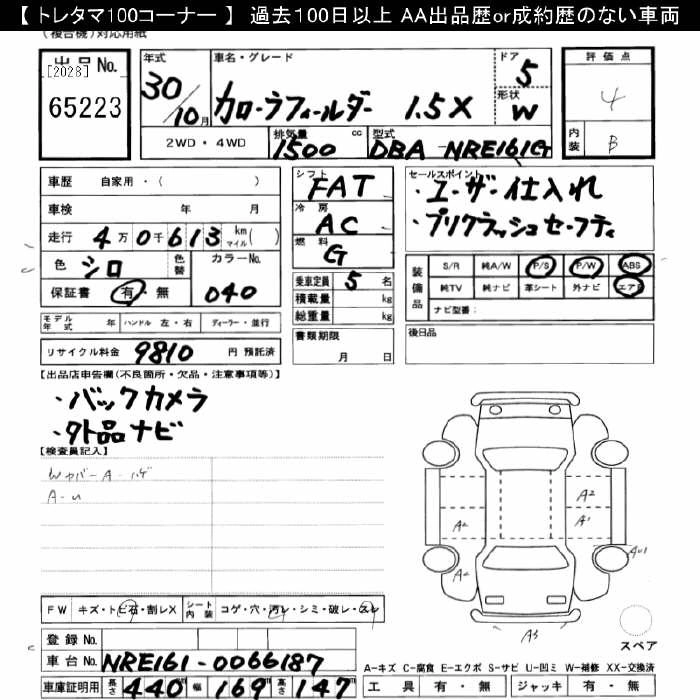 【 トレタマ100コーナー 】 過去100日以上 AA出品歴or成約歴のない車両
(複合機)対応用紙
出品No.
[2028]
65223
年式
30/10月
車名・グレード
カローラフィールダー 1.5X
ドア
5
形状
W
評価点
4
内装
B
2WD・4WD
排気量
1500 cc
型式
DBA-NRE161G
車歴 自家用・( )
車検 年 月
走行 4万0千613 km マイル( )
色 シロ
色替
カラーNo.
040
保証書 有・無
シフト
FAT
冷房
AC
燃料
G
乗車定員 5 名
積載量 kg
総重量 kg
書類期限
月 日
セールスポイント
・ユーザー仕入れ
・プリクラッシュセーフティ
装備品
S/R 純A/W P/S P/W ABS
純TV 純ナビ 革シート 外ナビ エアB
ナビ型番:
後日品
モデル年式 年 ハンドル 左・右 ディーラー・並行
リサイクル料金 9810 円 預託済
【出品店申告欄(不良箇所・欠品・注意事項等)】
・バックカメラ
・外品ナビ
【検査員記入】
Wカバー A-ハゲ
A-U
A2
A1
A2
A2
A3
FW キズ・トビ石・割レX
シート内装 コゲ・穴・汚レ・シミ・破レ・スレ
スペア
登録No.
車台No. NRE161-0066187
車庫証明用 長さ 440 幅 169 高さ 147
A-キズ C-腐食 E-エクボ S-サビ U-凹ミ W-補修 XX-交換済
工具 有・無 ジャッキ 有・無